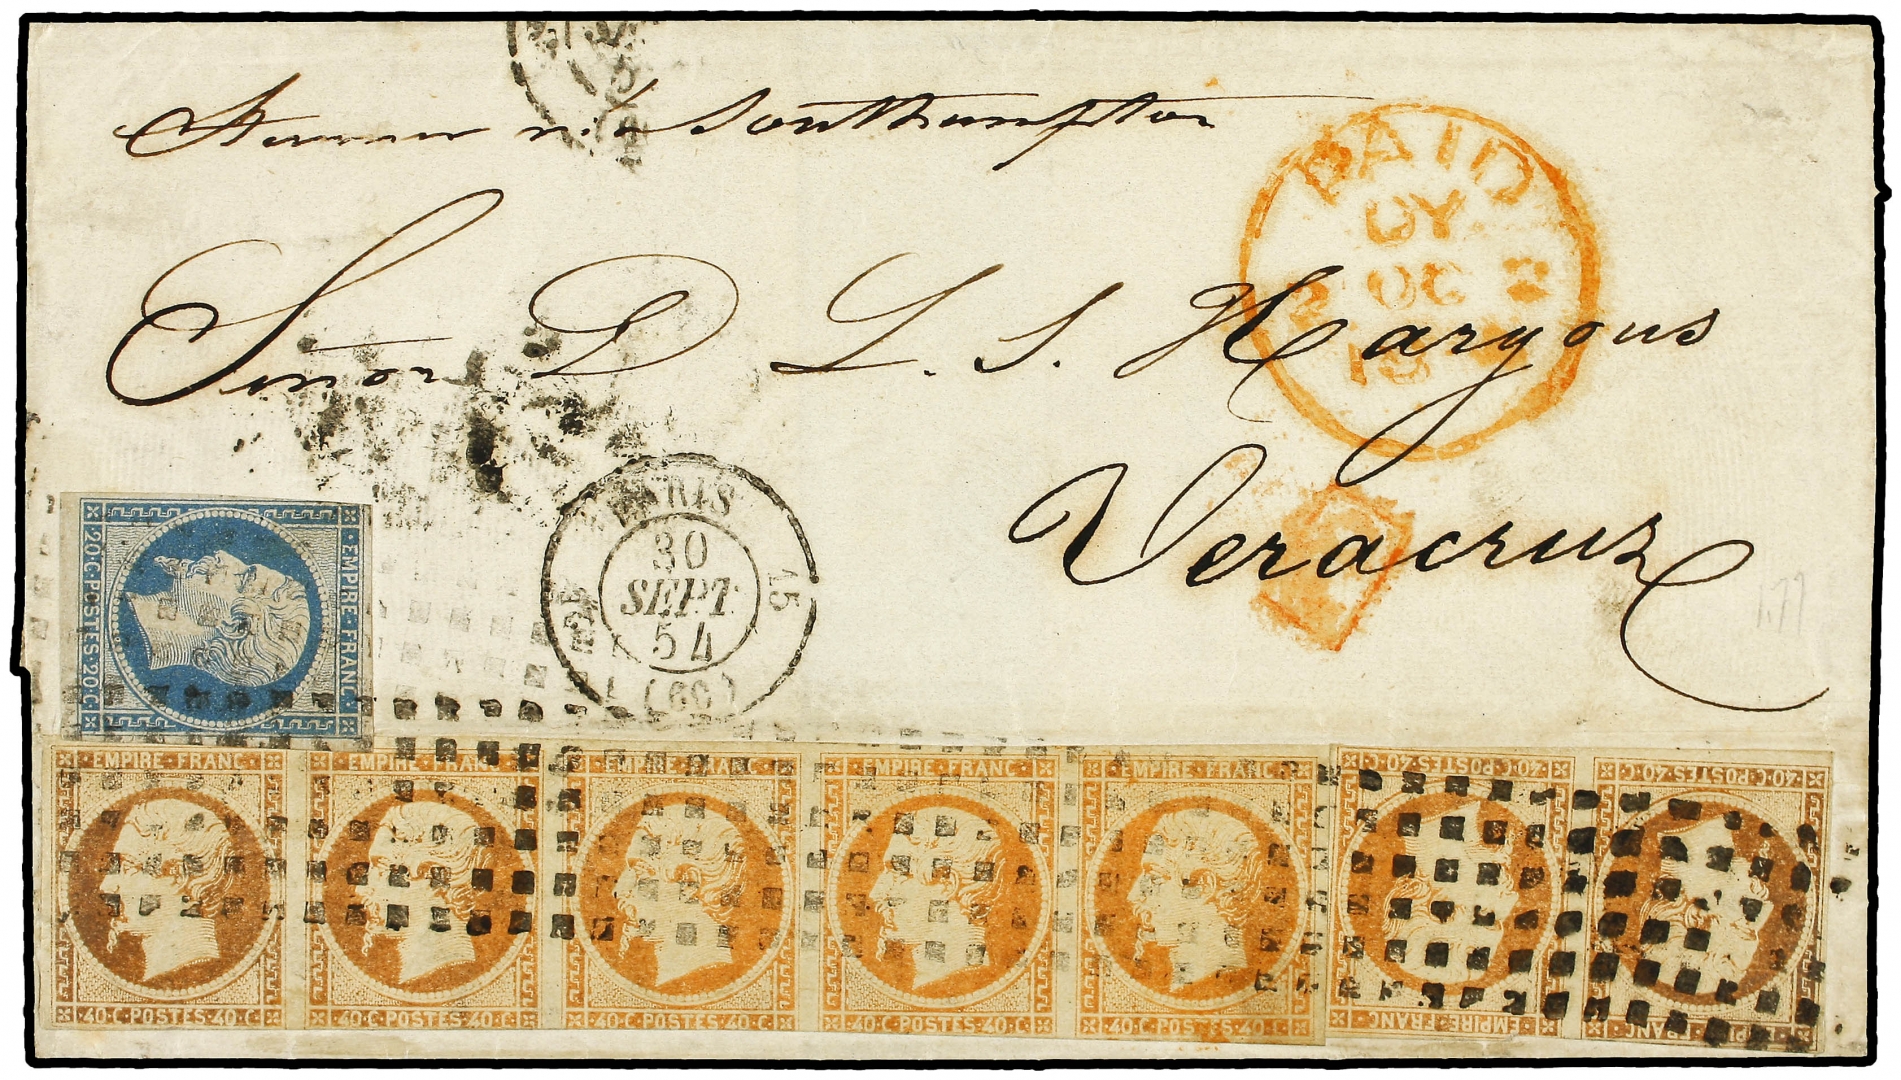 via Southampton
PAID
OY
OC
Señor D L. S. Hargous
PARIS
30
SEPT
54
15
(60)
Veracruz
1.77
EMPIRE·FRANC·
20·C·POSTES·20·C·
EMPIRE·FRANC·
EMPIRE·FRANC·
EMPIRE·FRANC·
EMPIRE·FRANC·
EMPIRE·FRANC·
40·C·POSTES·40·C·
40·C·POSTES·40·C·
40·C·POSTES·40·C·
40·C·POSTES·40·C·
40·C·POSTES·40·C
40·C·POSTES·40·C·
40·C·POSTES·40·C·
EMPIRE·FRANC·
EMPIRE·FRANC